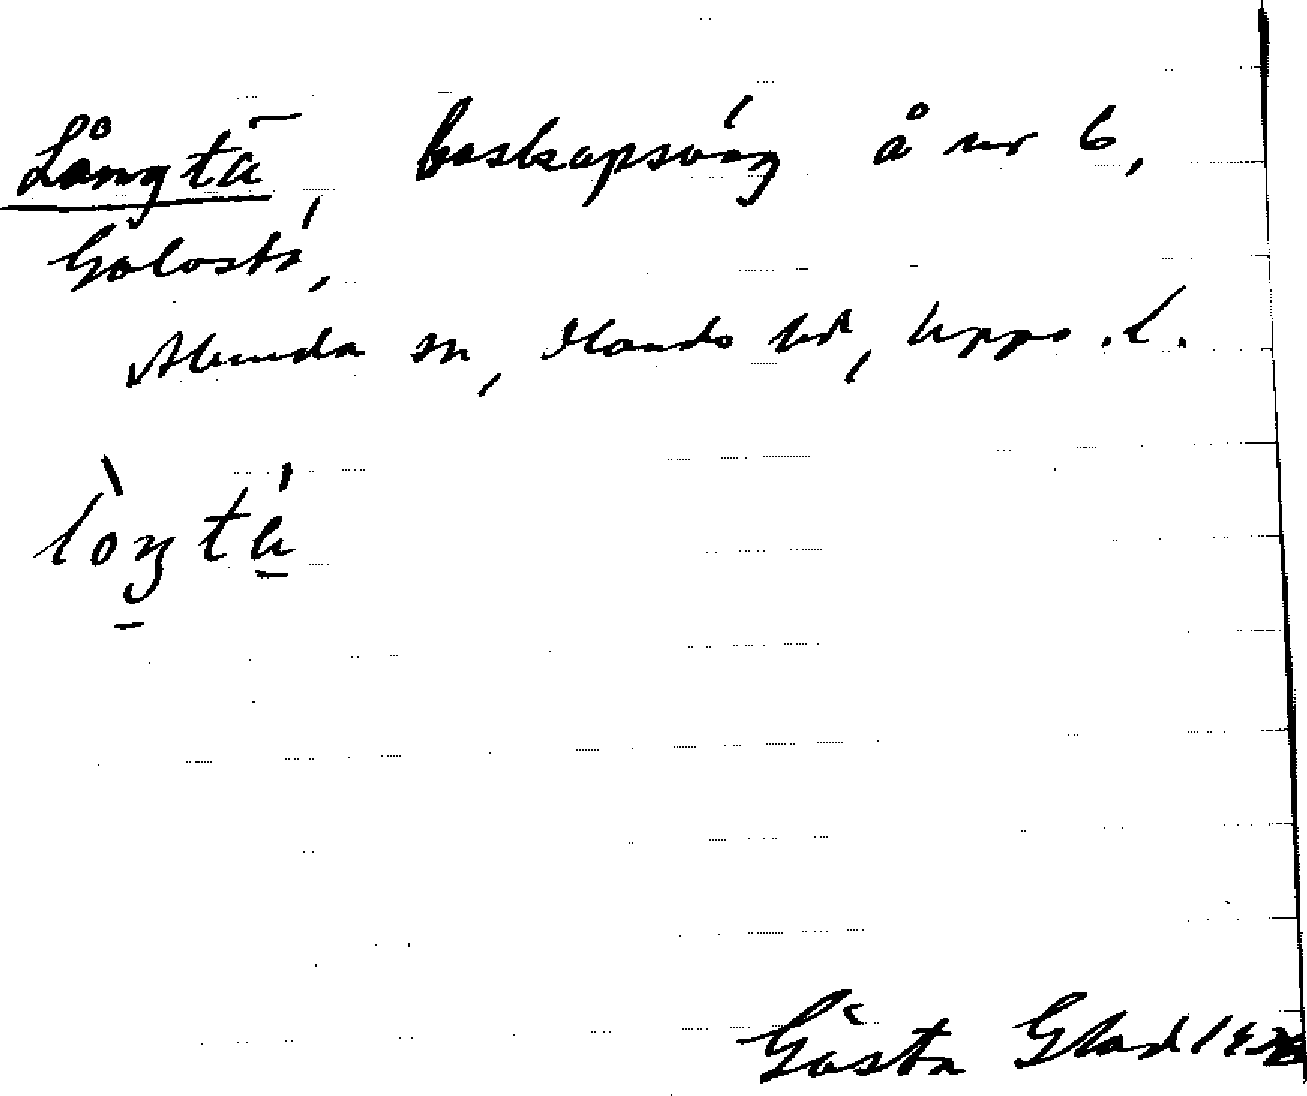 Långtā boskapsväg å nr 6,
Golosta,
Alunda sn, Olands hd, Upps. l.
lòŋtá
Gösta Glad